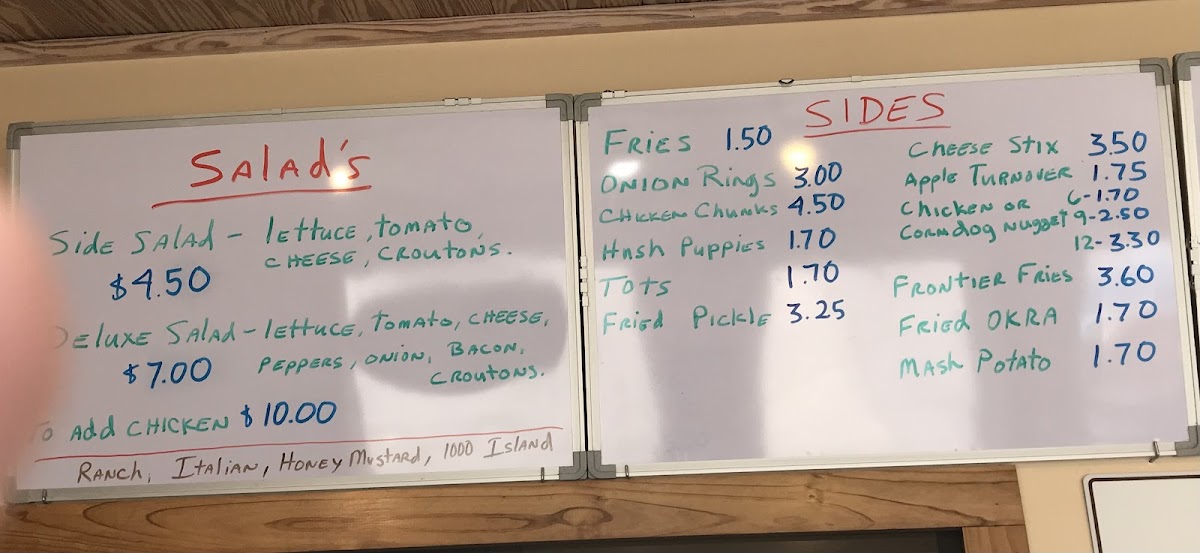 Salad's
Side Salad - lettuce, tomato,
cheese, croutons.
$4.50
Deluxe Salad - lettuce, tomato, cheese,
$7.00 peppers, onion, bacon,
croutons.
To Add Chicken $10.00
Ranch, Italian, Honey Mustard, 1000 Island
SIDES
Fries 1.50
Onion Rings 3.00
Chicken Chunks 4.50
Hush Puppies 1.70
Tots 1.70
Fried Pickle 3.25
Cheese Stix 3.50
Apple Turnover 1.75
Chicken or 6-1.70
Corndog Nugget 9-2.50
12-3.30
Frontier Fries 3.60
Fried Okra 1.70
Mash Potato 1.70